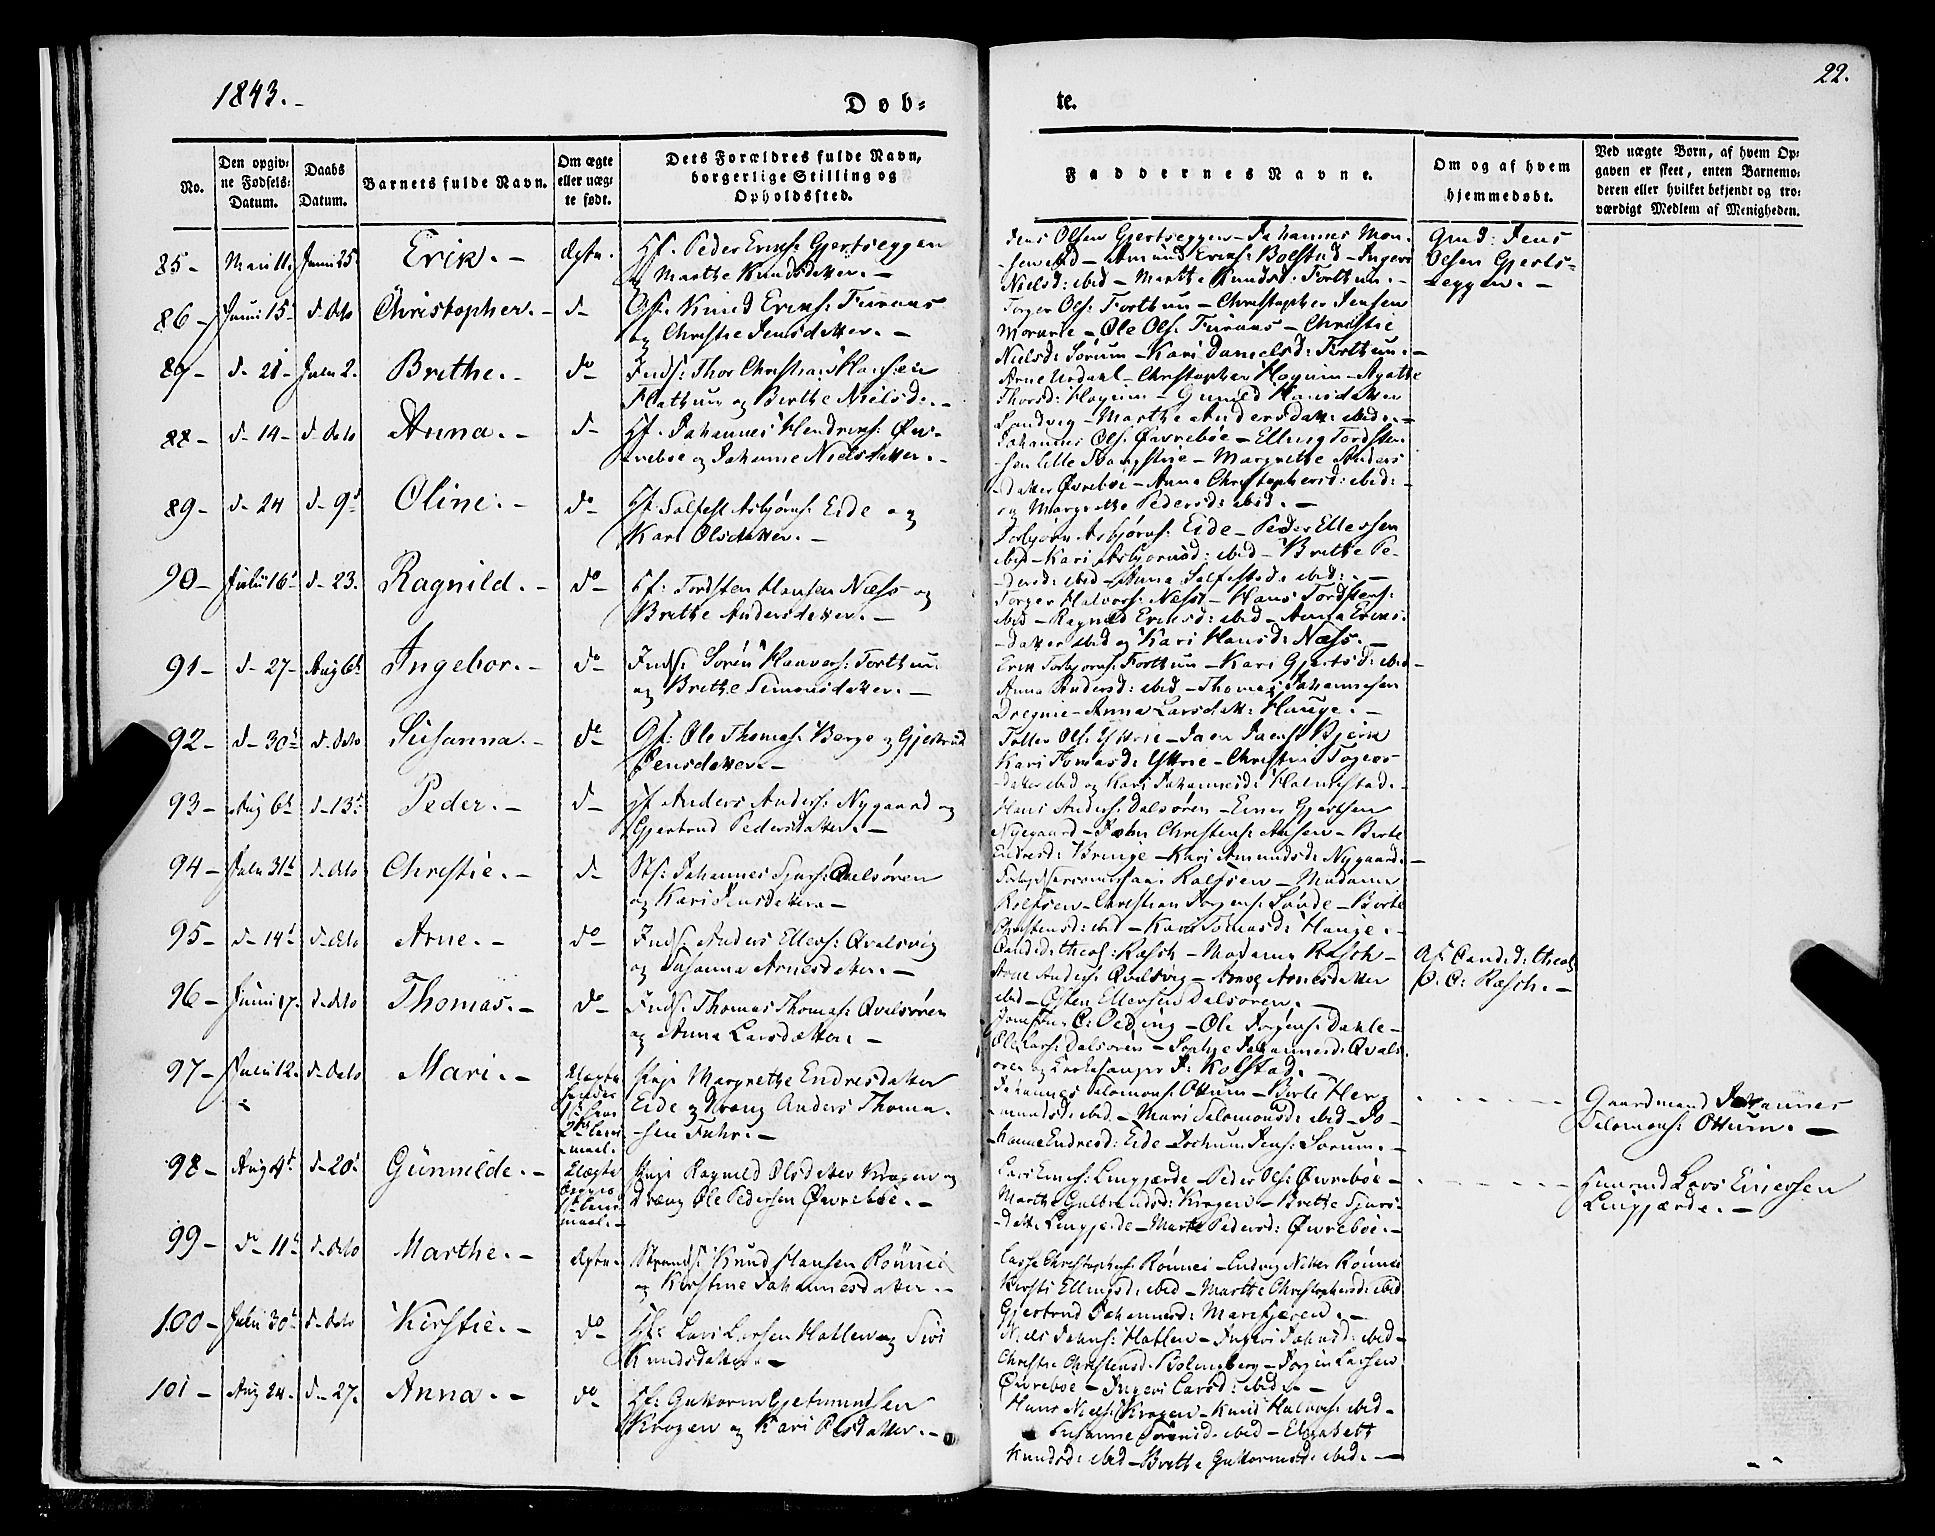 1843.-
Døb-
te.
22.
No.
Den opgiv-
ne Fødsels-
Datum.
Daabs
Datum.
Barnets fulde Navn.
Om ægte
eller uæg-
te født.
Dets Forældres fulde Navn,
borgerlige Stilling og
Opholdssted.
Faddernes Navne.
Om og af hvem
hjemmedøbt.
Ved uægte Børn, af hvem Op-
gaven er skeet, enten Barnemo-
deren eller hvilket bekjendt og tro-
værdigt Medlem af Menigheden.
85- Mai 11. Juni 25. Erik.- Ægte. Hf. Peder Erichs: Gjertseggen
og Marthe Knudsdatter.-
Jens Olsen Gjertseggen - Johannes Mon-
sen ibd - Amund Erichs: Bolstad - Ingeri
Nielsd: ibid - Marthe Knudsd: Forthun.-
Gmd: Jens
Olsen Gjerts-
eggen.-
86- Juni 15- d- dito Christopher.- d- Gf. Knud Erichs: Furaas
og Christie Jensdatter.-
Torger Ols: Forthun - Christopher Jensen
- Ole Ols: Furaas - Christie
Nielsd: Sørum - Kari Danielsd: Forthun.-
87- d- 21- Julii 2. Brithe.- do- Inds: Thor Christians: Hansen
Flathun og Berthe Nielsd:.-
Arne Urdahl - Christopher Høyum - Agatte
Thorsd: Høyum - Gunild Hansdatter
Sandvig - Marthe Andersdatt: ibid.-
88- d- 14- d- dito Anna.- d- Hf. Johannes Hendrichs: Øv-
reboe og Johanne Nielsdatter.-
Johannes Ols: Øvreboe - Elling Tordsten-
sen Lille - Margrethe Anders
datter Øvreboe - Anna Christophersd: ibid:-
og Margrethe Pedersd: ibid.-
89- d- 24 d- 9d Oline.- do- Hf. Salfest Asbjørns: Eide og
Kari Olsdatter.-
Torbjørn Asbjørns: Eide - Peder Ellefsen
ibid - Kari Asbjørnsd: ibid - Brithe Pe-
dersd: ibid - Anna Salfestsd: ibid:.-
90- Julii 16d d- 23. Ragnild.- do- Hf: Tordsten Hansen Næss og
Brithe Andersdatter.-
Torger Halvors: Næss - Hans Tordstens:
ibid - Ragnild Eriksd: ibid - Anna Erics-
datter ibid og Kari Hansd: Næss.-
91- d- 27- Aug 6te Ingebor.- do- Inds: Søren Halvors: Forthun
og Brithe Simonsdatter.-
Erik Torbjørns: Forthun - Kari Gjertsd: ibid-
Anna Andersd: ibid - Thomas Johannesen
Dregnie - Anna Larsdatt: Hauge.-
92- d- 30te d- dito Susanna.- do- Gf: Ole Thomas: Berge og Gjertrud
Jensdatter.-
Tollev Ols: Yttrie - Jens
Kari Tomasd: Yttrie - Christie Togers-
datter ibid og Kari Johannesd: Halmestad.-
93- Aug 6te d- 13de Peder.- d- Hf Anders Anders: Nygaard og
Gjertrud Pedersdatter.-
Hans Anders: Dalsøren - Einer Gjertsen
Nygaard - Peder Christens: - Berte
Endresd: Bringe - Kari Amundsd: Nygaard.-
94- Julii 31te d- dito Christie.- d- Johannes Sjurs: Qvalsøren
og Kari Jensdatter.-
Rolfsen - Madame
Rolfsen - Christian Jørgens: - Berte
Christensd: ibd - Kari Tomasd: Hauge.-
95- d- 14d d- dito Arne.- do- Inds: Anders Ellevs: Qvalsvig
og Susanna Arnesdatter.-
Candid: theol: Rasch - Madame Rasch -
Arne Anders: Qvalsvig - Anne Arnesdatter
ibid - Østen Ellevsen Dalsøren.-
Af Candid: theol
P. C: Rasch.-
96- Juni 17. d- dito Thomas.- do- Inds: Thomas Thomas: Qvalsøren
og Anna Larsdatter.-
C: Oeding - Ole Jørgens: Dahle -
Ole Lars: Dalsøren - Sophie Johannesd: Qvals-
øren og Kirkesanger J: Kolstad.-
97- Julii 12. d- dito Mari.- Uægte Pige Margrethe Endresdatter
Eide og Dreng Anders Thoma-
sen Fuhr.-
Johannes Salomons: Ottum - Berte Her-
mundsd: ibid - Mari Salomonsd: ibid - Jo-
hanne Endresd: Eide - Jochum Jens: Sørum.-
Gaardmand Johannes
Salomons: Ottum.-
98- Aug 4d d- 20d Gunnilde.- Uægte Pige Ragnild Olsdatter Krogen og
Dreng Ole Pedersen Øvreboe.-
Lars Erichs: Lingjærde - Peder Ols: Øvreboe -
Marthe Gulbrandsd: Krogen - Brithe Sjurs-
datt: Lingjerde - Marthe Pedersd: Øvreboe.-
Huusmd Lars Ericksen
Lingjærde.-
99- do- 11te d- dito Marthe.- Ægte. Strands: Knud Hansen Rønnei
og Kirstine Johannesdatter.-
Lasse Christophers: Rønnei - Ludvig Rønnei
Kirsti Ellingsd: ibid - Marthe Christophersd: ibid
Gjertrud Johannesd: Marifjæren.-
100- Julii 30te d- dito Kirstie.- do- Hf: Lars Larsen Hatlen og Siri
Knudsdatter.-
Niels Johns: Hatlen - Ingeri Johnsd: ibid-
Christie Christensd: Bolingberg - Jørgen Larsen
Øvreboe - Ingeri Larsd: ibid.-
101- Aug 24. d- 27. Anna.- do- Hf: Guttorm Gjetmundsen
Krogen og Kari Olsdatter.-
Hans Niels: Krogen - Knud Halvors: ibid-
Susanne Sørensd: ibid - Elisabett
Knudsd: ibid - Brithe Guttormsd: ibid.-